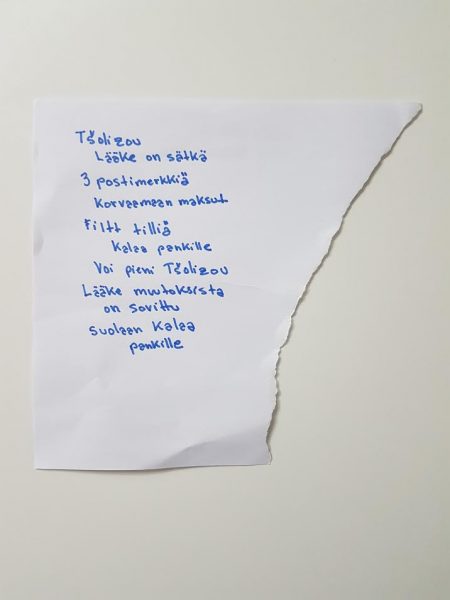 Tšolizou
Lääke on sätkä
3 postimerkkiä
Korvaamaan maksut
Filtt tilliä
Kalaa pankille
Voi pieni Tšolizou
Lääke muutoksista
on sovittu
Suolaan Kalaa
pankille